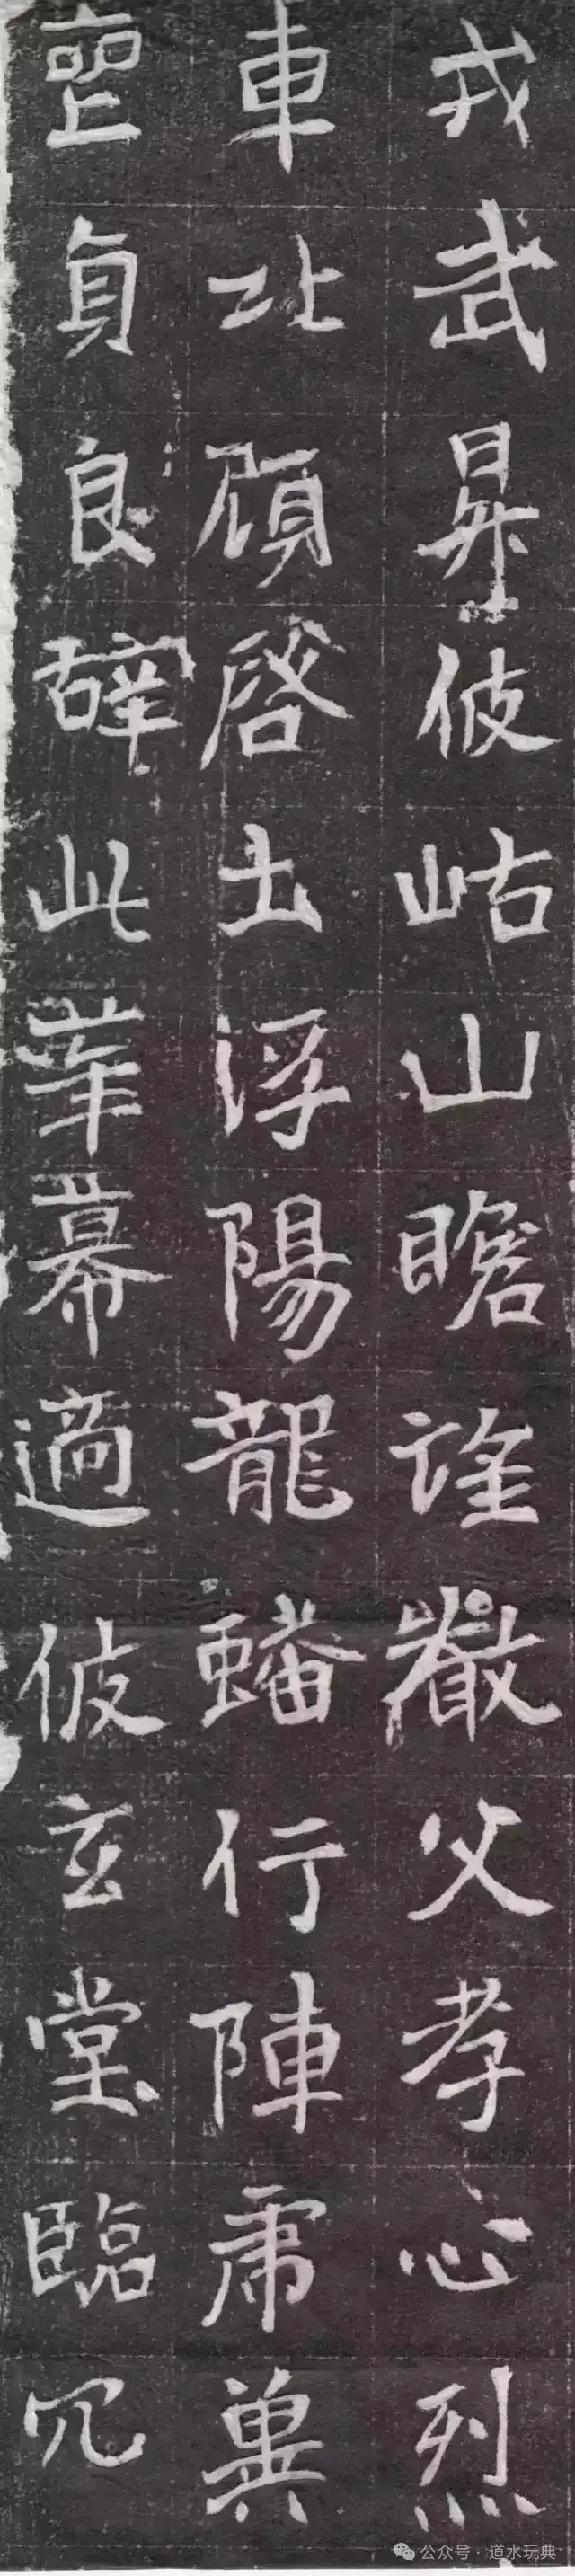 戎武昇彼岵山瞻誰嚴父孝心烈
車北顧啓土浮陽龍蟠行陣虎翼
喪貞良辭此華幕適彼玄堂臨穴
公众号·道水玩典